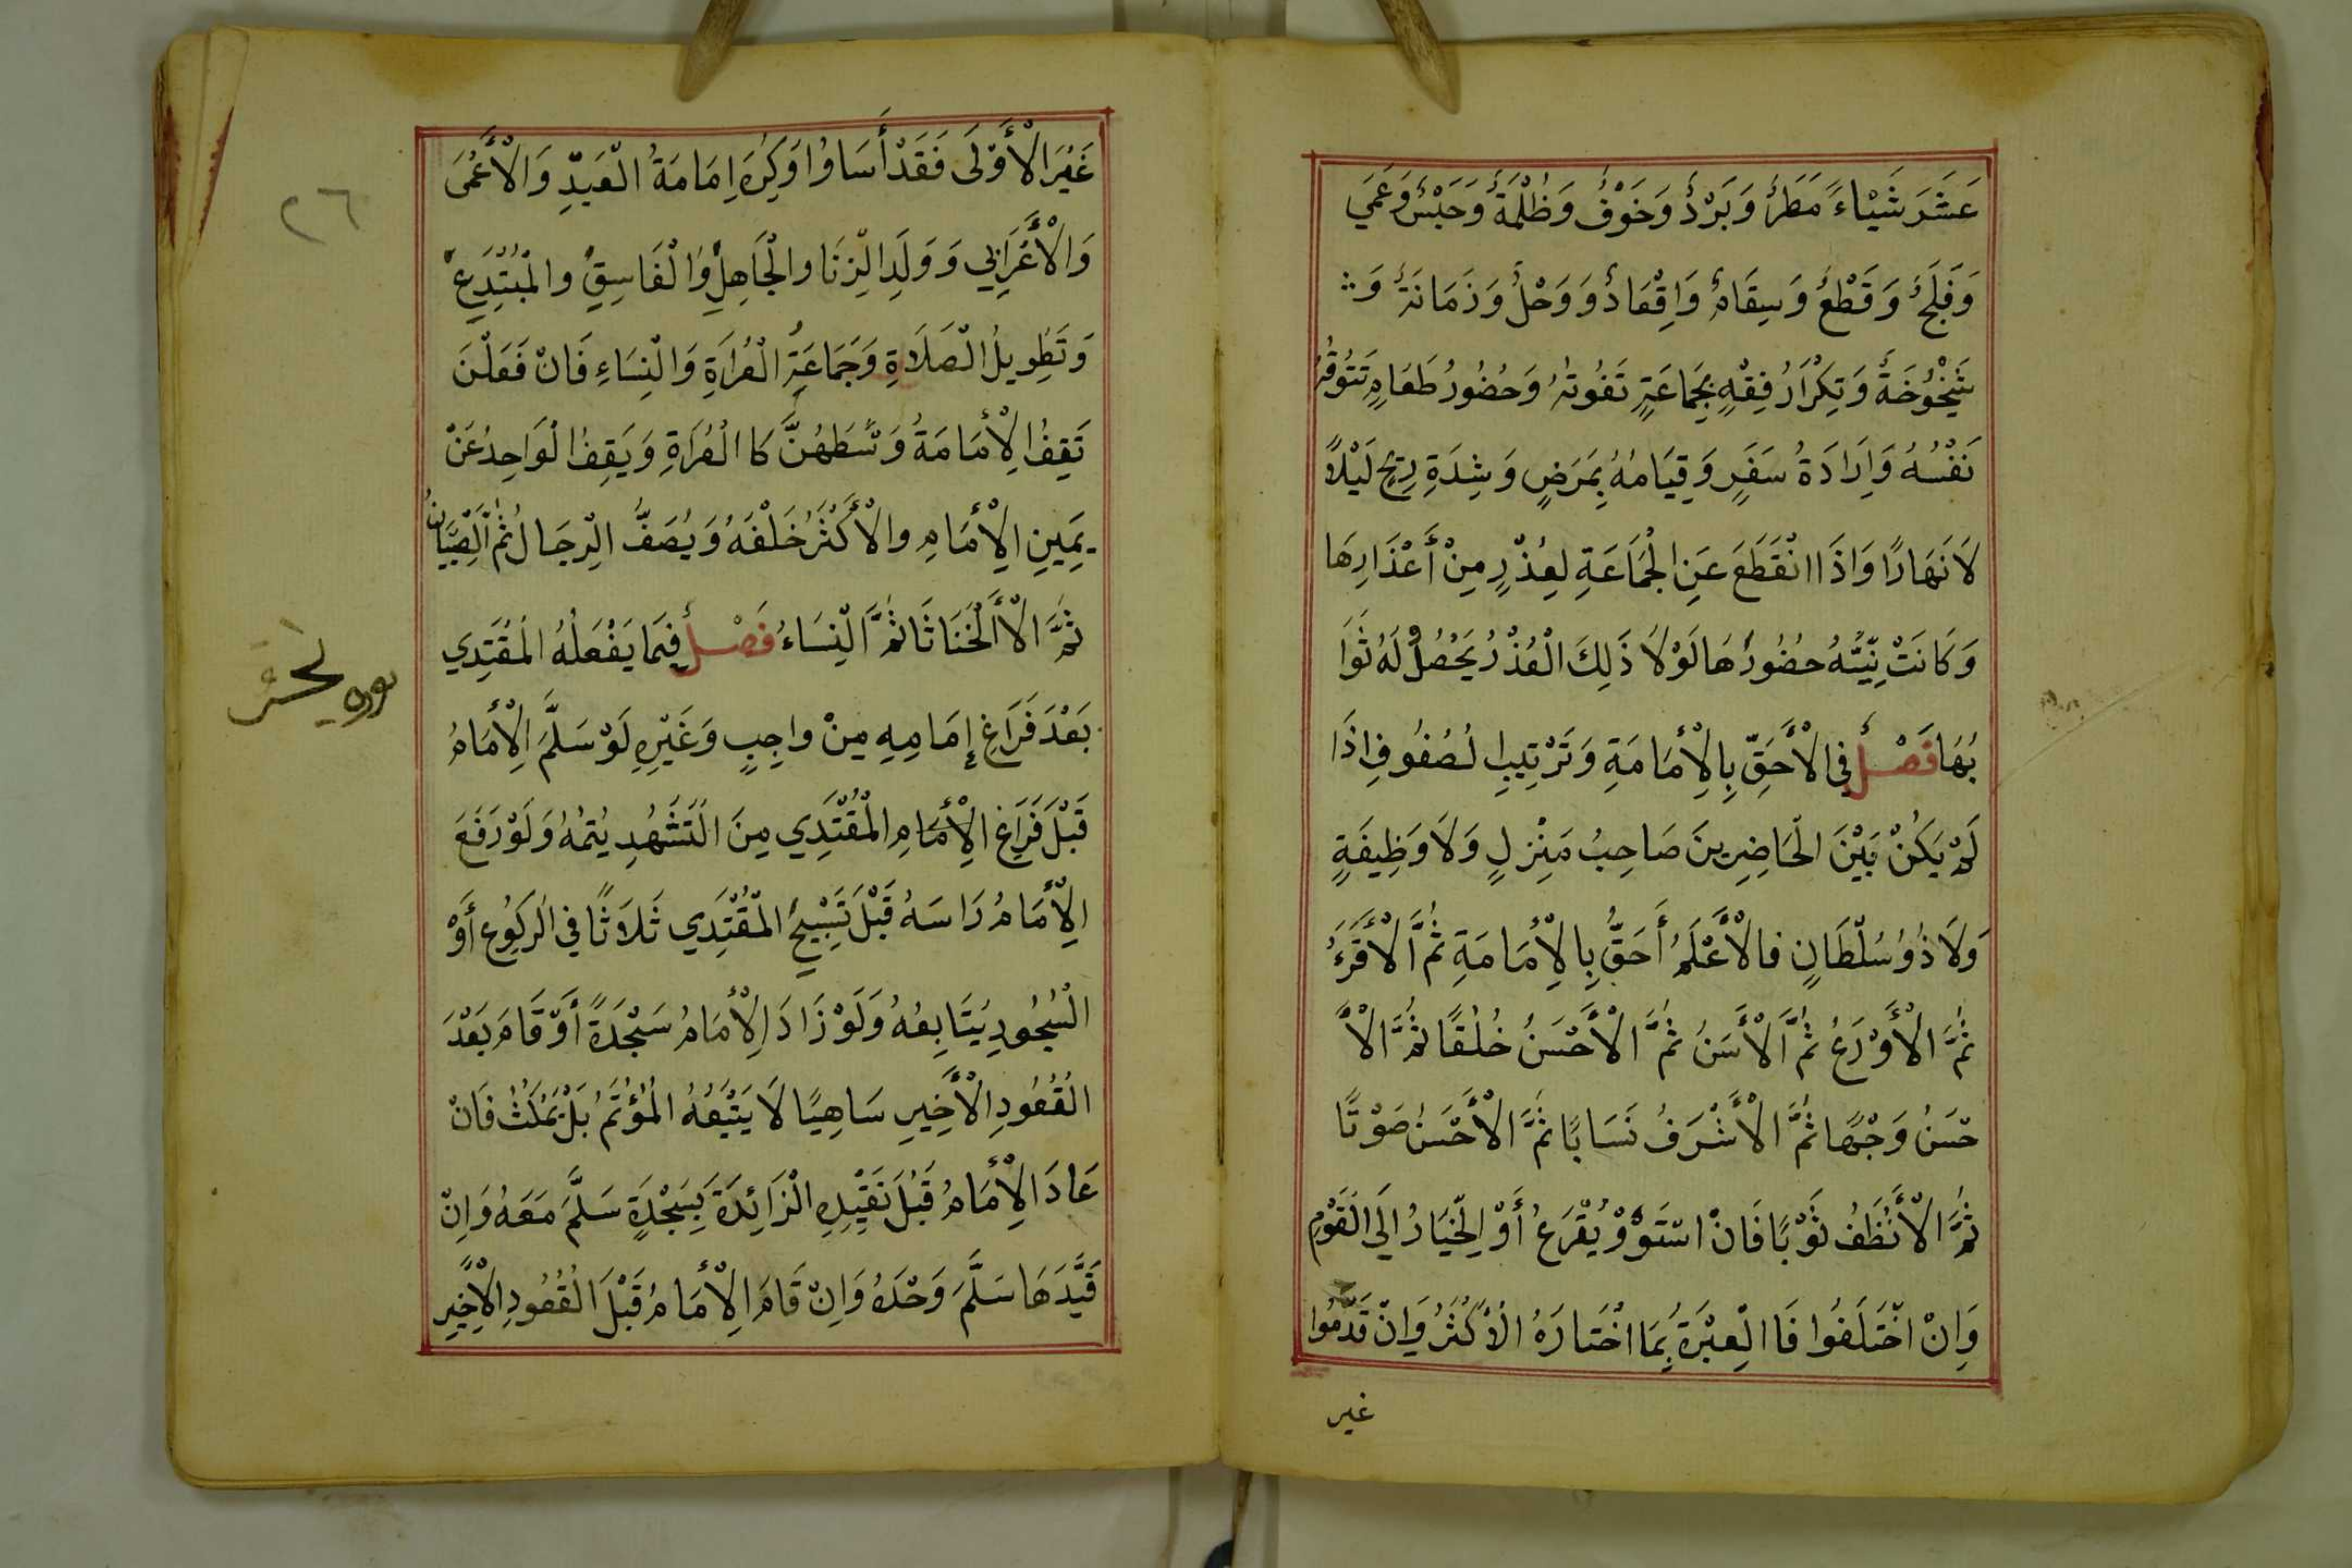 عَشَرَ شَيْاءً مَطَرٌ وَبَرْدٌ وَخَوْفٌ وَظُلْمَةٌ وَحَبْسٌ وَعَمَي
وَفَلَجٌ وَقَطْعُ وَسِقَامٌ وَاِقْعَادٌ وَوَحْلٌ وَزَمَانَةٌ وَ
شَيْخُوُخَةٌ وَتِكْرَارُ فِقْهٍ بِجَمَاعَةٍ تَفُوتُهُ وَحُضُورُ طَعَامٍ تَتُوقُهُ
نَفْسُهُ وَاِرَادَةُ سَفَرٍ وَقِيَامُهُ بِمَرَضٍ وَشِدَةِ رِيحٍ لَيْلاً
لَا نَهَارًا وَاذَا انْقَطَعَ عَنِ الْجَمَاعَةِ لِعُذْرٍ مِنْ أَعْذَارِهَا
وَكَانَتْ نِيَّتُهُ حُضُورُهَا لَوْلَا ذَلِكَ الْعُذْرُ يَحْصُلُ لَهُ ثَوَا
بُهَا فَصْلٌ فِي الْأَحَقِّ بِالْأِمَامَةِ وَتَرْتِيبِ لصُفُوفِ اِذَا
لَمْ يَكُنْ بَيْنَ الْحَاضِرِينَ صَاحِبُ مَنْزِلٍ وَلَا وَظِيفَةٍ
وَلَا ذُوُ سُلْطَانٍ فالْأَعْلَمُ أَحَقُّ بِالْأِمَامَةِ ثُمَّ الْأَقَرَءُ
ثُمَّ الْأَوْرَعُ ثُمَّ الْأَسَنُ ثُمَّ الْأَحْسَنُ خُلُقًا ثُمَّ الْأَ
حْسَنُ وَجْهًا ثُمَّ الْأَشْرَفُ نَسَابًا ثُمَّ الْأَحْسَنُ صَوْتًا
ثُمَّ الْأَنْظَفُ ثَوْبًا فَانْ اسْتَوَوْ يُقْرَعُ أَوْ الْخِيَارُ اِلَي الْقَوْمِ
وَاِنْ اخْتَلَفُوا فَا الْعِبْرَةُ بِمَا اخْتَارَهُ الْأَكْثَرُ وَاِنْ قَدَّمُوا
غير
٢٦
غَيْرَ الْأَوْلَى فَقَدْ أَسَاوُا وَكُرِهَ اِمَامَةُ الْعَبْدِ وَالْأَعْمَى
وَالْأَعْرَابِي وَوَلَدِ الزِنَا والْجَاهِلِ وَالْفَاسِقٍ والْمُبْتَدِعِ
وَتَطْوِيلُ الْصَلَاةِ وَجَمَاعَةُ الْعُرَاةِ وَالْنِسَاءِ فَانْ فَعَلْنَ
تَقِفُ الْأِمَامَةُ وَسَّطَهُنَّ كا الْعُرَاةِ وَيَقِفُ الْوَاحِدُ عَنْ
يَمِينِ الْأِمَامِ والْأَكْثَرُ خَلْفَهُ وَيُصَفُّ الرِجَالُ ثُمَّ الصِّبْيَانُ
ثُمَّ الْأَالْخَنَاثَا ثُمَّ النِسَاءُ فَصْلٌ فِيمَا يَفْعَلْهُ الْمُقْتَدِي
بَعْدَ فَرَاغِ إِمَامِهِ مِنْ واجِبٍ وَغَيْرِهِ لَوْ سَلَّمَ الْأِمَامُ
قَبْلَ فَرَاغِ الْأِمَامِ الْمُقْتَدِي مِنَ الْتَشَهُدِ يُتِمُهُ وَلَوْ رَفَعَ
الْأِمَامُ رَاسَهُ قَبْلَ تَسْبِيحِ الْمُقْتَدِي ثَلَاثًا فِي الرُكُوعِ أَوْ
الْسُجُودِ يُتَابِعُهُ وَلَوْ زَادَ الْأِمَامُ سَجْدَةً أَوْ قَامَ بَعْدَ
الْقُعُودِ الْأَخِيرِ سَاهِيًا لَا يَتْبَعُهُ الْمُؤْتَمُ بَلْ يَمْكُثُ فَانْ
عَادَ الْأِمَامُ قَبْلَ تَقْيِيدِهِ الْزَائِدَةَ بِسَجْدَةٍ سَلَّمَ مَعَهُ وَاِنْ
قَيَّدَهَا سَلَّمَ وَحْدَهُ وَاِنْ قَامَ الْأِمَامُ قَبْلَ الْقُعُودِ الْأَخِيرِ